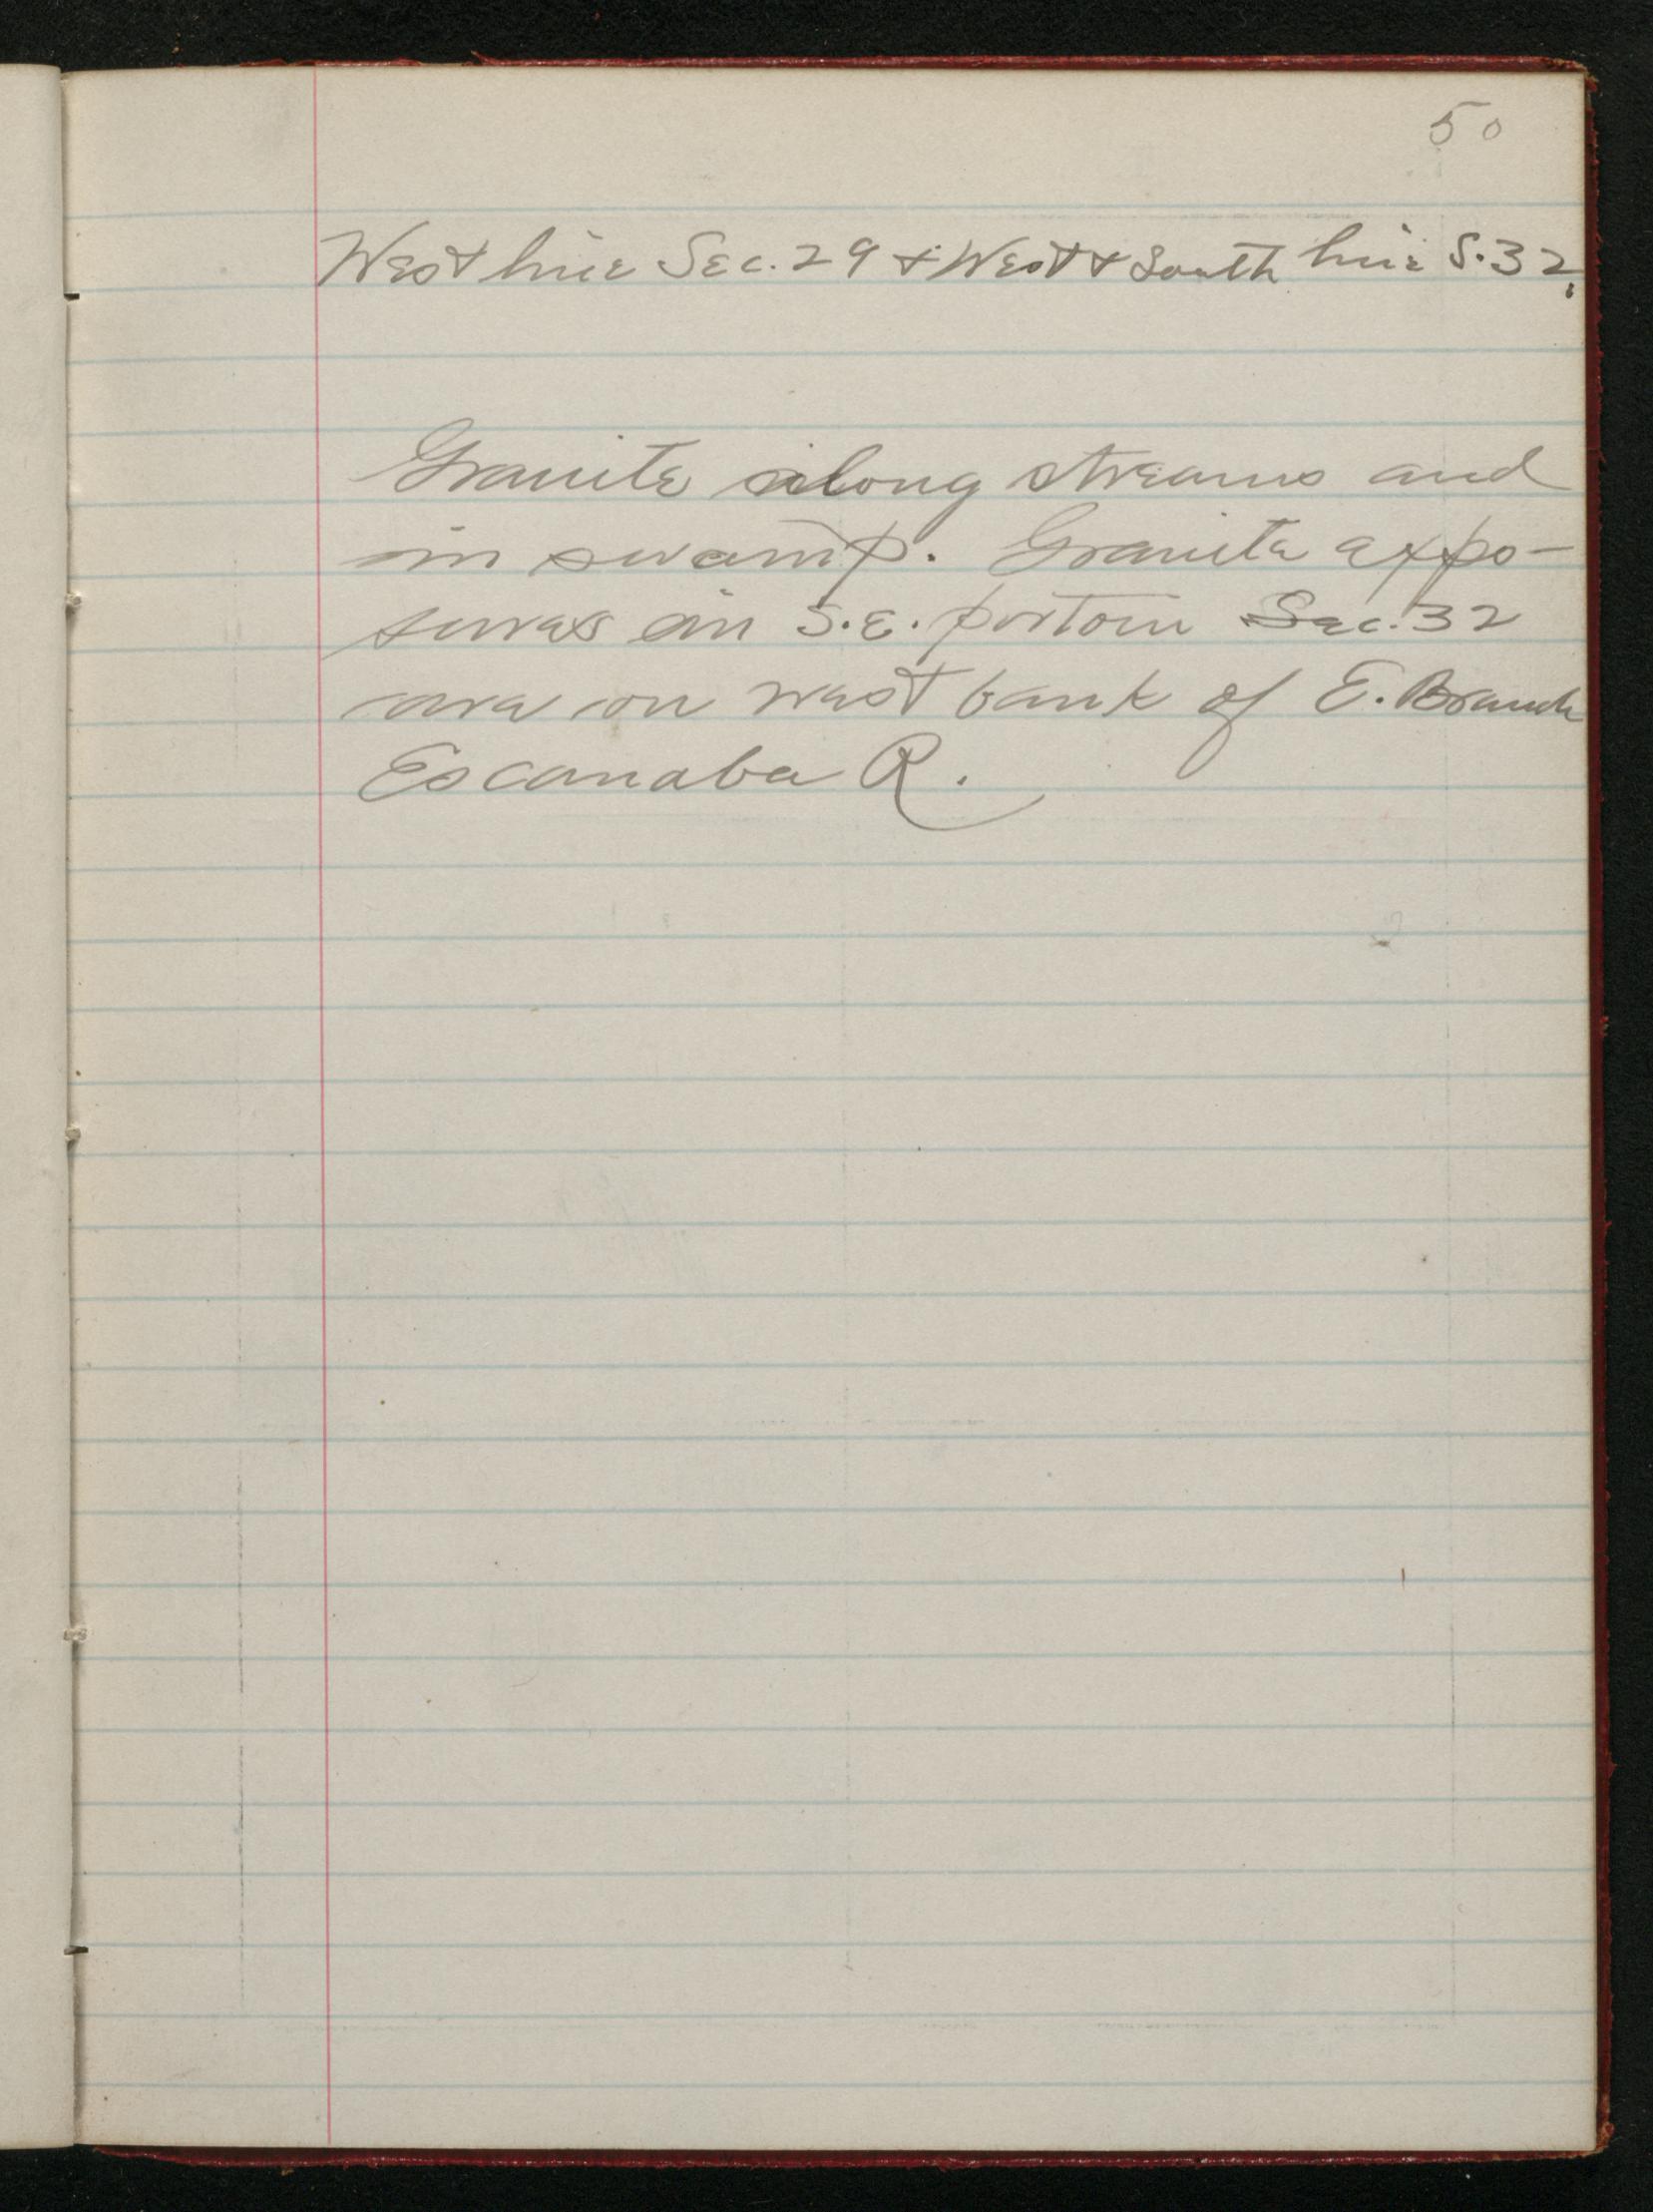 50
West line Sec. 29 + West + South line S. 32.
Granite along streams and
in swamp. Granite expo-
sures in S.E. portion Sec. 32
are on west bank of E. Branch
Escanaba R.